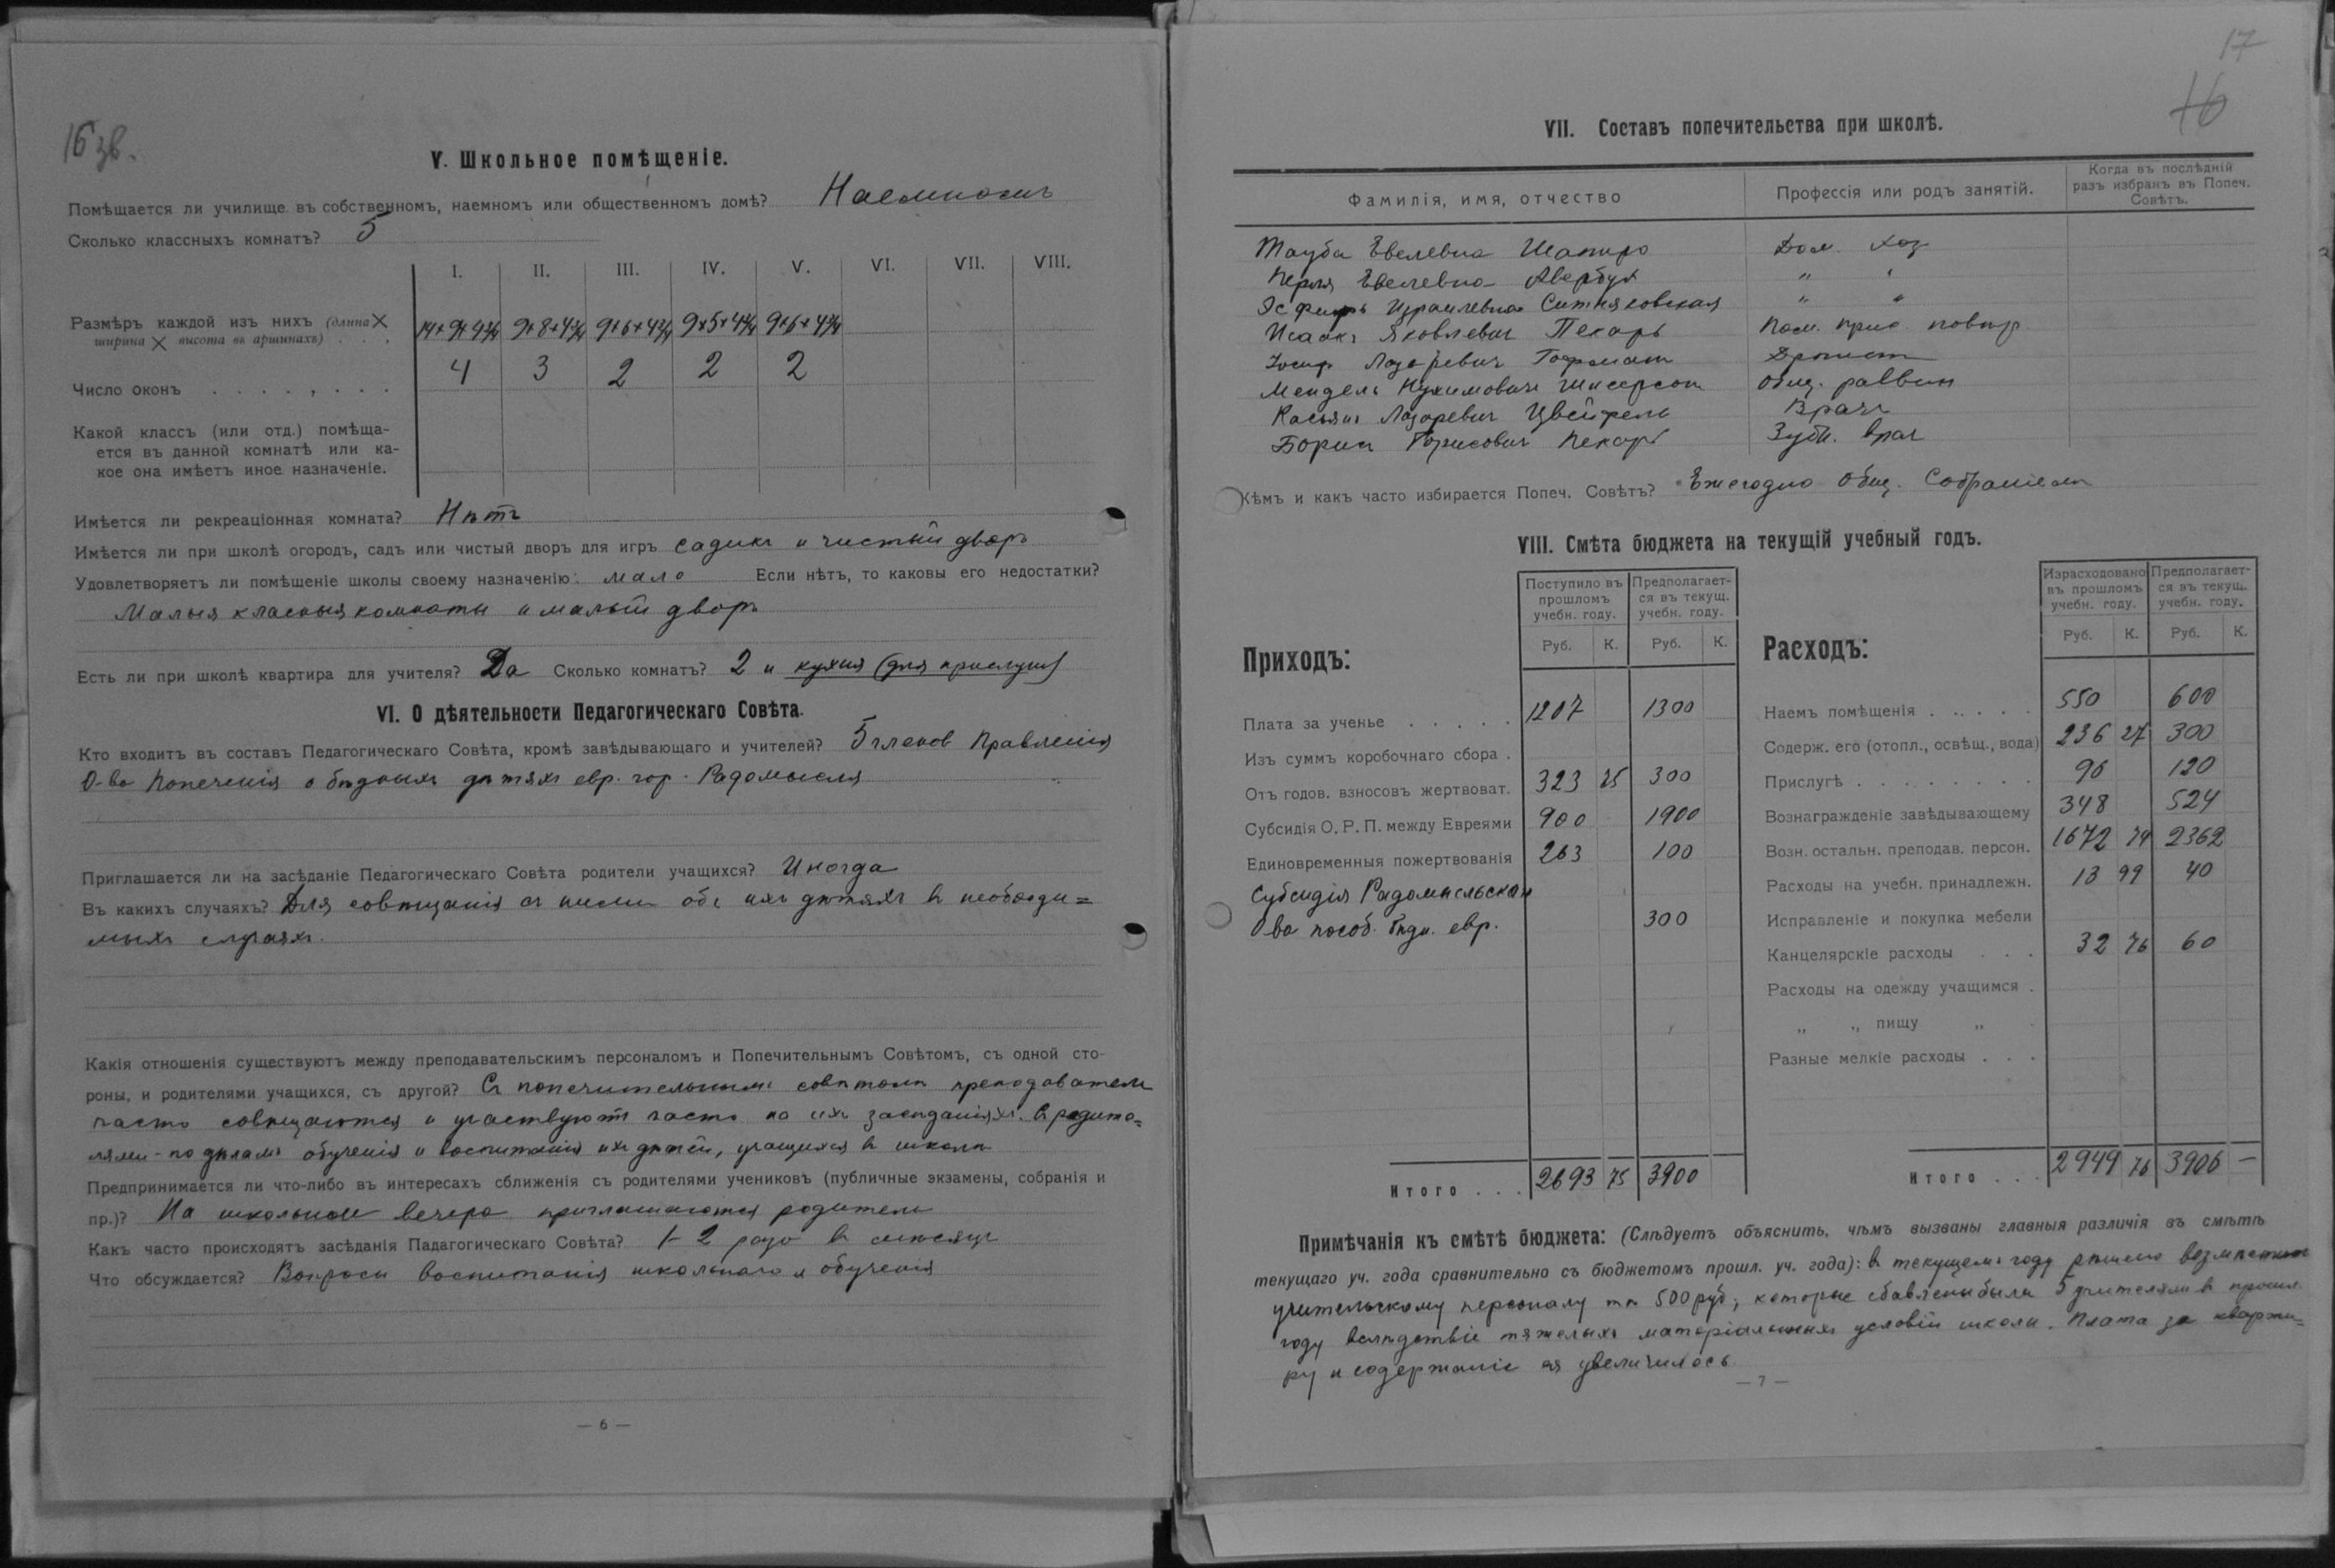 16 зв.
V. Школьное помѣщеніе.
Помѣщается ли училище въ собственномъ, наемномъ или общественномъ домѣ? Наемномъ
Сколько классныхъ комнатъ? 5
I. II. III. IV. V. VI. VII. VIII.
Размѣръ каждой изъ нихъ (длина X
ширина X высота въ аршинахъ) . . . 14+9+4¾ 9+8+4¾ 9+6+4¾ 9+5+4¾ 9+6+4¾
Число оконъ . . . . , . . . 4 3 2 2 2
Какой классъ (или отд.) помѣща-
ется въ данной комнатѣ или ка-
кое она имѣетъ иное назначеніе.
Имѣется ли рекреаціонная комната? Нѣтъ
Имѣется ли при школѣ огородъ, садъ или чистый дворъ для игръ садикъ и чистый дворъ
Удовлетворяетъ ли помѣщеніе школы своему назначенію: мало Если нѣтъ, то каковы его недостатки?
Малыя класныя комнаты и малый дворъ
Есть ли при школѣ квартира для учителя? Да Сколько комнатъ? 2 и кухня (для прислуги)
VI. О дѣятельности Педагогическаго Совѣта.
Кто входитъ въ составъ Педагогическаго Совѣта, кромѣ завѣдывающаго и учителей? 5 членов Правленія
О-ва Попеченія о бѣдныхъ дѣтяхъ евр. гор. Радомысля
Приглашается ли на засѣданіе Педагогическаго Совѣта родители учащихся? Иногда
Въ какихъ случаяхъ? Для совѣщанія съ ними объ ихъ дѣтяхъ въ необходи=
мыхъ случаяхъ.
Какія отношенія существуютъ между преподавательскимъ персоналомъ и Попечительнымъ Совѣтомъ, съ одной сто-
роны, и родителями учащихся, съ другой? Съ попечительнымъ совѣтомъ преподаватели
часто совѣщаются и участвуютъ часто на ихъ засѣданіяхъ. Съ родите=
лями - по дѣламъ обученія и воспитанія ихъ дѣтей, учащихся въ школѣ
Предпринимается ли что-либо въ интересахъ сближенія съ родителями учениковъ (публичные экзамены, собранія и
пр.)? На школьные вечера приглашаются родители
Какъ часто происходятъ засѣданія Падагогическаго Совѣта? 1-2 раза въ мѣсяцъ
Что обсуждается? Вопросы воспитанія школьнаго и обученія
— 6 —
17
16
VII. Составъ попечительства при школѣ.
Фамилія, имя, отчество
Профессія или родъ занятій.
Когда въ послѣдній
разъ избранъ въ Попеч.
Совѣтъ.
Тауба Евелевна Шапиро Дом. хоз
Перля Евелевна Авербух " "
Эсфирь Израилевна Ситняковская " "
Исаакъ Яковлевич Пекарь Пом. прис. повѣр
Іосиф Лазаревич Гофман Дантист
Мендель Нухимовичъ Шнеерсон Общ. раввин
Касьянъ Лазаревич Цвейфель Врачъ
Борисъ Борисович Пекарь Зубн. врач
Кѣмъ и какъ часто избирается Попеч. Совѣтъ? Ежегодно Общ. Собраніемъ
VIII. Смѣта бюджета на текущій учебный годъ.
Приходъ:
Поступило въ прошломъ учебн. году.
Предполагает-ся въ текущ. учебн. году.
Руб. К. Руб. К.
Плата за ученье . . . . . 1207 1300
Изъ суммъ коробочнаго сбора .
Отъ годов. взносовъ жертвоват. 323 25 300
Субсидія О. Р. П. между Евреями 900 1900
Единовременныя пожертвованія 263 100
Субсидія Радомысльскаго
О-ва пособ. бѣдн. евр. 300
Итого . . . 2693 75 3900
Расходъ:
Израсходовано въ прошломъ учебн. году.
Предполагает-ся въ текущ. учебн. году.
Руб. К. Руб. К.
Наемъ помѣщенія . . . . . 550 600
Содерж. его (отопл., освѣщ., вода) 236 27 300
Прислугѣ . . . . . . . . 96 120
Вознагражденіе завѣдывающему 348 524
Возн. остальн. преподав. персон. 1672 74 2362
Расходы на учебн. принадлежн. 13 99 40
Исправленіе и покупка мебели
Канцелярскіе расходы . . . 32 76 60
Расходы на одежду учащимся .
„ „ пищу „ .
Разные мелкіе расходы . . .
Итого . . . 2949 76 3906 —
Примѣчанія къ смѣтѣ бюджета: (Слѣдуетъ объяснить, чѣмъ вызваны главныя различія въ смѣтѣ
текущаго уч. года сравнительно съ бюджетомъ прошл. уч. года): въ текущемъ году рѣшено возмѣстить
учительскому персоналу тѣ 500 руб, которые сбавлены были 5 учителямъ в прошл.
году вслѣдствіе тяжелыхъ матеріальныхъ условій школы. Плата за кварти=
ру и содержаніе ея увеличилось.
— 7 —